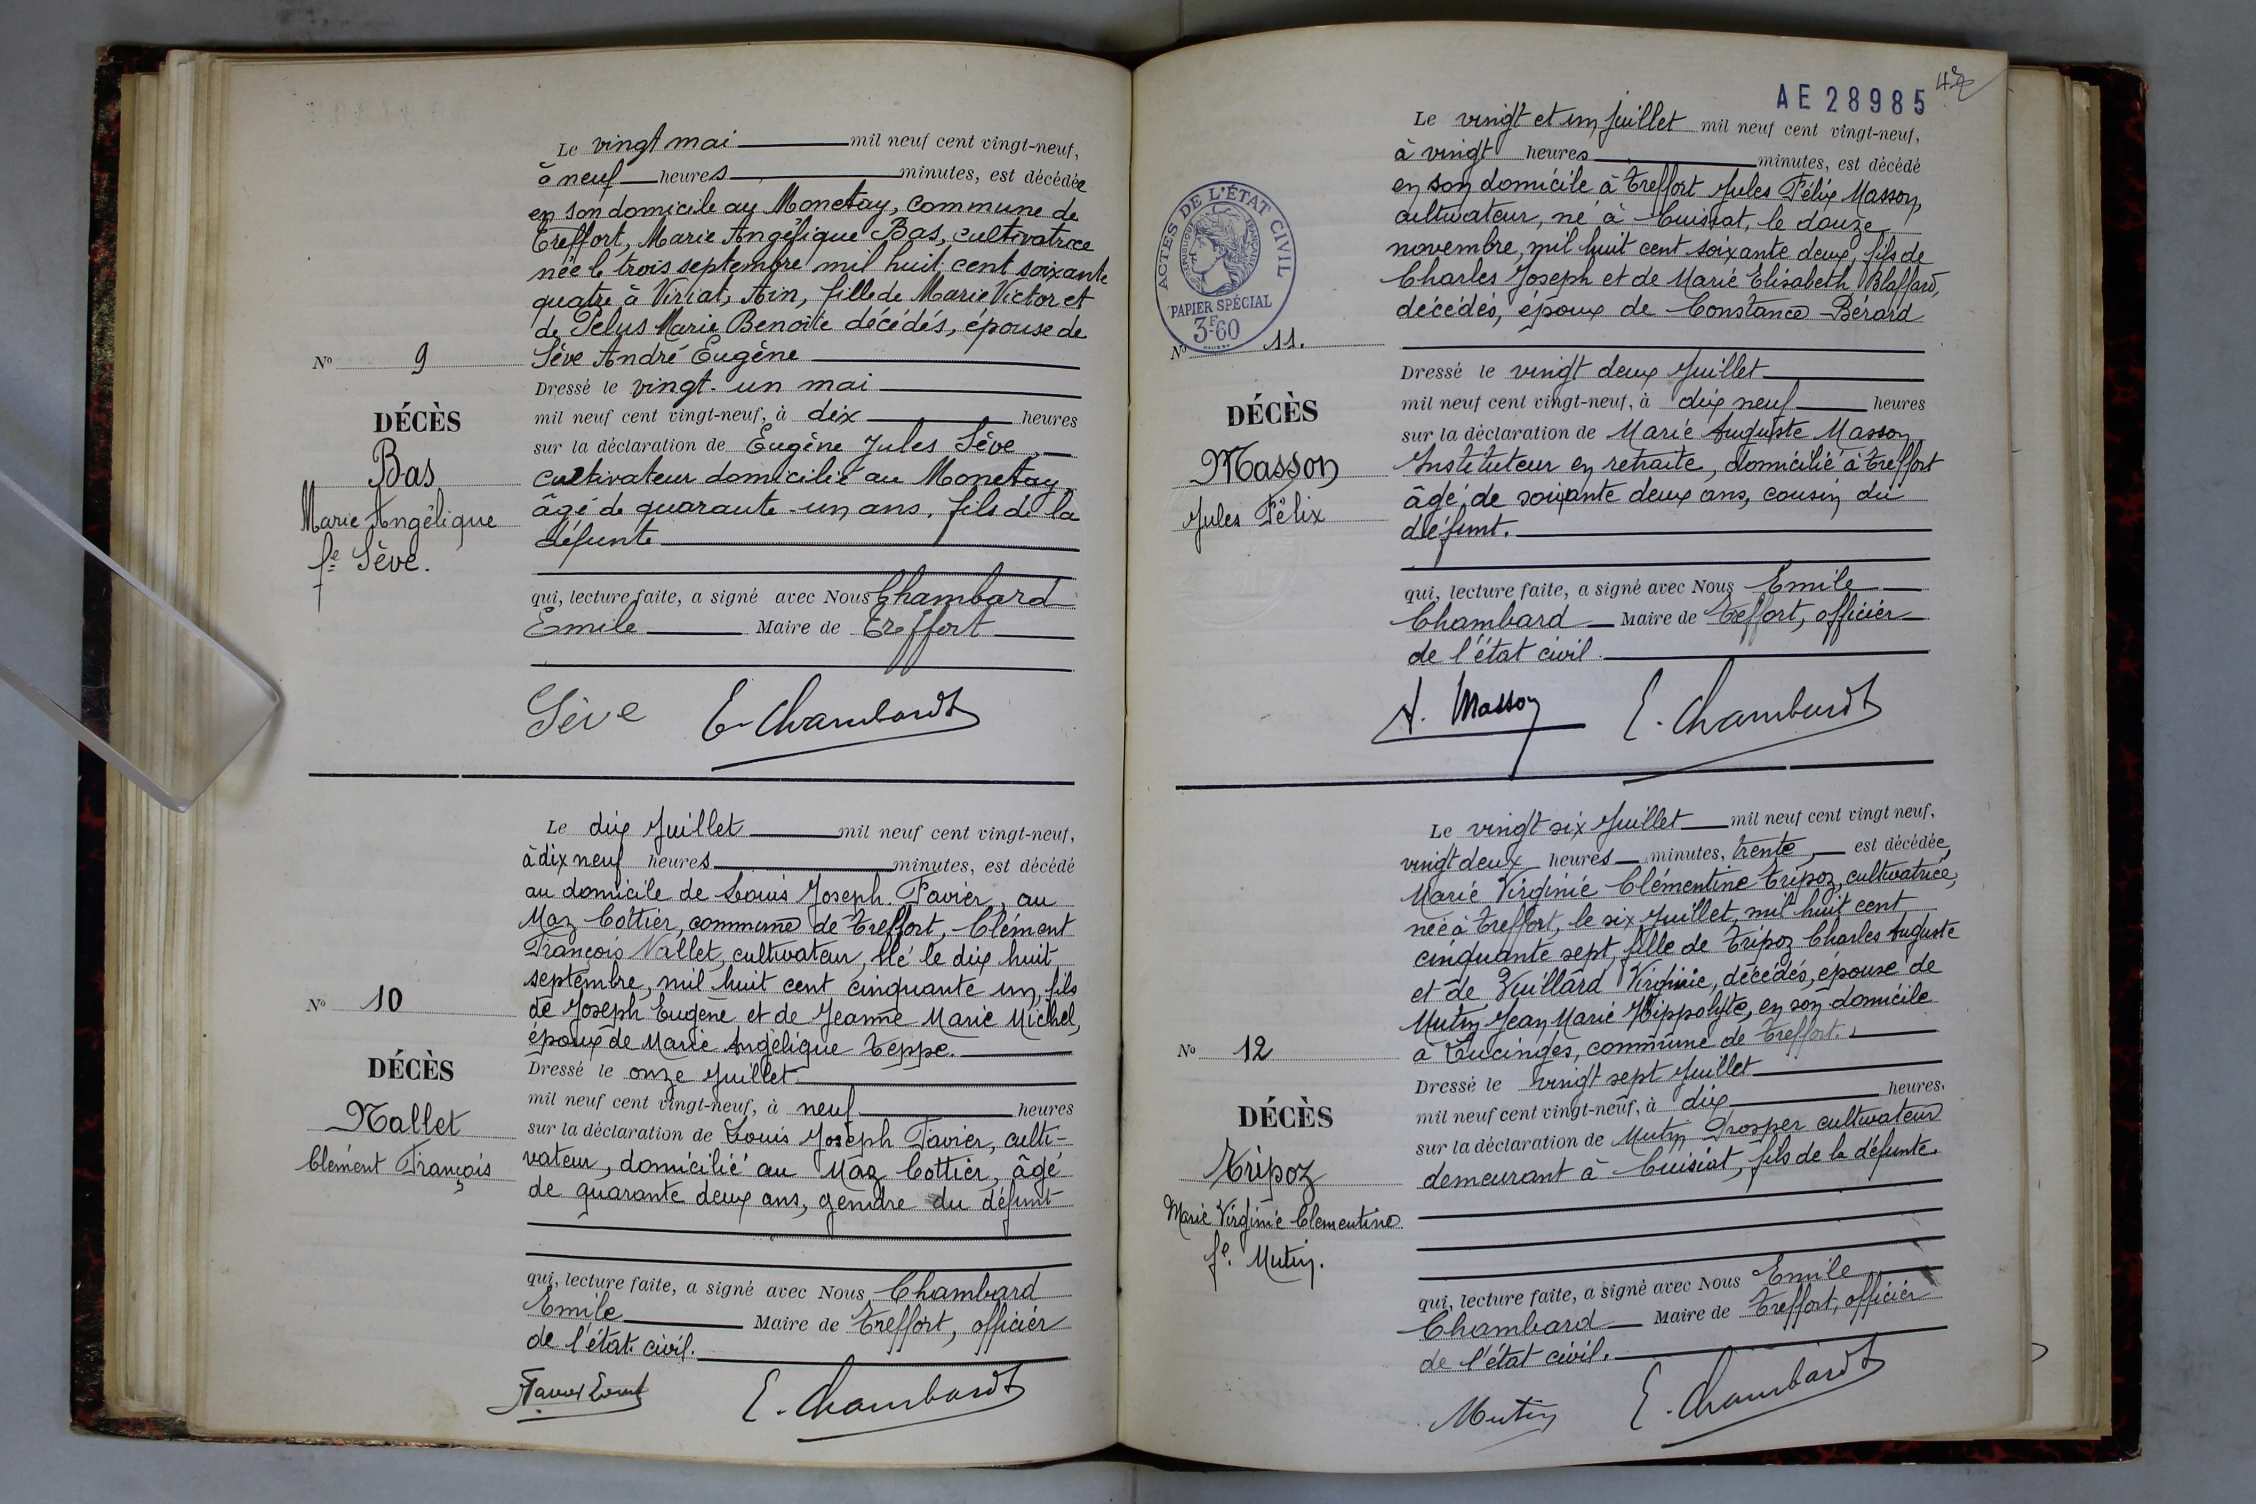 Le vingt mai mil neuf cent vingt-neuf,
à neuf heures minutes, est décédée
en son domicile au Monetay, commune de
Treffort, Marie Angélique Bas, cultivatrice
née le trois septembre mil huit cent soixante
quatre à Viriat, Ain, fille de Marie Victor et
de Pelus Marie Benoite décédés, épouse de
Sève André Eugène
Nº 9
Dressé le vingt-un mai
mil neuf cent vingt-neuf, à dix heures
sur la déclaration de Eugène Jules Sève,
cultivateur domicilié au Monetay
âgé de quarante-un ans, fils de la
défunte
DÉCÈS
Bas
Marie Angélique
fe Sève.
qui, lecture faite, a signé avec Nous Chambard
Emile Maire de Treffort
Sève E. Chambardt
Le dix Juillet mil neuf cent vingt-neuf,
à dix neuf heures minutes, est décédé
au domicile de Louis Joseph Favier, au
Maz Cottier, commune de Treffort, Clément
François Nallet, cultivateur, Né le dix huit
septembre, mil huit cent cinquante un, fils
de Joseph Eugène et de Jeanne Marie Michel,
époux de Marie Angélique Teppe.
Nº 10
Dressé le onze Juillet
mil neuf cent vingt-neuf, à neuf heures
sur la déclaration de Louis Joseph Favier, culti-
vateur, domicilié au Maz Cottier, âgé
de quarante deux ans, gendre du défunt
DÉCÈS
Nallet
Clément François
qui, lecture faite, a signé avec Nous Chambard
Emile Maire de Treffort, officier
de l'état civil.
E. Chambardt
AE 28985
Le vingt et un Juillet mil neuf cent vingt-neuf,
à vingt heures minutes, est décédé
en son domicile à Treffort Jules Félix Masson,
cultivateur, né à Cuisiat, le douze
novembre, mil huit cent soixante deux, fils de
Charles Joseph et de Marie Elisabeth Blaffard,
décédés, époux de Constance Bérard
ACTES DE L'ÉTAT CIVIL
RÉPUBLIQUE FRANÇAISE
PAPIER SPÉCIAL
3F60
Nº 11.
Dressé le vingt deux Juillet
mil neuf cent vingt-neuf, à dix neuf heures
sur la déclaration de Marie Auguste Masson
Instituteur en retraite, domicilié à Treffort
âgé de soixante deux ans, cousin du
défunt.
DÉCÈS
Masson
Jules Félix
qui, lecture faite, a signé avec Nous Emile
Chambard Maire de Treffort, officier
de l'état civil.
A. Masson E. Chambardt
Le vingt six Juillet mil neuf cent vingt neuf,
vingt deux heures minutes, trente, est décédée,
Marie Virginie Clémentine Tripoz, cultivatrice,
née à Treffort, le six Juillet, mil huit cent
cinquante sept, fille de Tripoz Charles Auguste
et de Vuillard Virginie, décédés, épouse de
Mutin Jean Marie Hippolyte, en son domicile
à Lucinges, commune de Treffort.
Nº 12
Dressé le vingt sept Juillet
mil neuf cent vingt-neuf, à dix heures.
sur la déclaration de Mutin Prosper cultivateur
demeurant à Cuisiat, fils de la défunte.
DÉCÈS
Tripoz
Marie Virginie Clementine
fe. Mutin.
qui, lecture faite, a signé avec Nous Emile
Chambard Maire de Treffort, officier
de l'état civil.
Mutin E. Chambardt